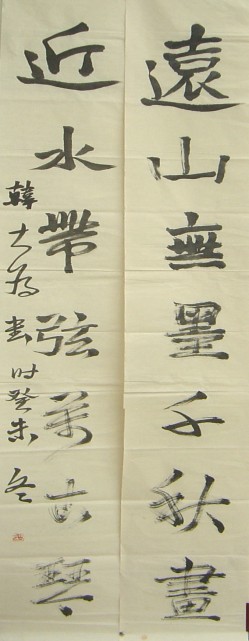 遠山無墨千秋畫
近水帶弦萬古琴
韓大为書时癸未冬